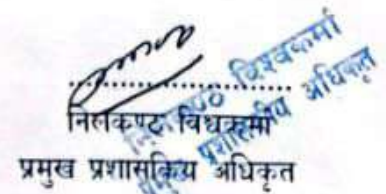 निलकण्ठ विश्वकर्मा
प्रमुख प्रशासकिय अधिकृत
विश्वकर्मा
प्रशासकीय अधिकृत